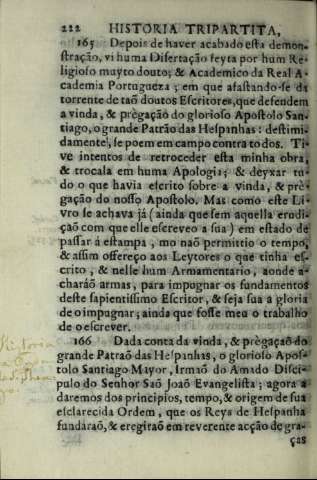 222 HISTORIA TRIPARTITA,
165 Depois de haver acabado esta demon-
stração, vi huma Disertação feyta por hum Re-
ligioso muyto douto; & Academico da Real A-
cademia Portugueza ; em que afastando-se da
torrente de taõ doutos Escritores, que defendem
a vinda, & prègação do glorioso Apostolo San-
tiago, o grande Patrão das Hespanhas : destimi-
damente, se poem em campo contra todos. Ti-
ve intentos de retroceder esta minha obra,
& trocala em huma Apologia; & deyxar tu-
do o que havia escrito sobre a vinda, & prè-
gação do nosso Apostolo. Mas como este Li-
vro se achava já ( ainda que sem aquella erudi-
çaõ com que elle escreveo a sua ) em estado de
passar á estampa , mo naõ permittio o tempo,
& assim offereço aos Leytores o que tinha es-
crito , & nelle hum Armamentario, aonde a-
charáõ armas, para impugnar os fundamentos
deste sapientissimo Escritor, & seja sua a gloria
de o impugnar; ainda que fosse meu o trabalho
de o escrever.
166 Dada conta da vinda, & prègaçaõ do
grande Patraõ das Hespanhas, o glorioso Apos-
tolo Santiago Mayor, Irmaõ do Amado Disci-
pulo do Senhor Saõ Joaõ Evangelista ; agora a
daremos dos principios, tempo, & origem de sua
esclarecida Ordem, que os Reys de Hespanha
fundaraõ, & eregiraõ em reverente acção de gra-
ças